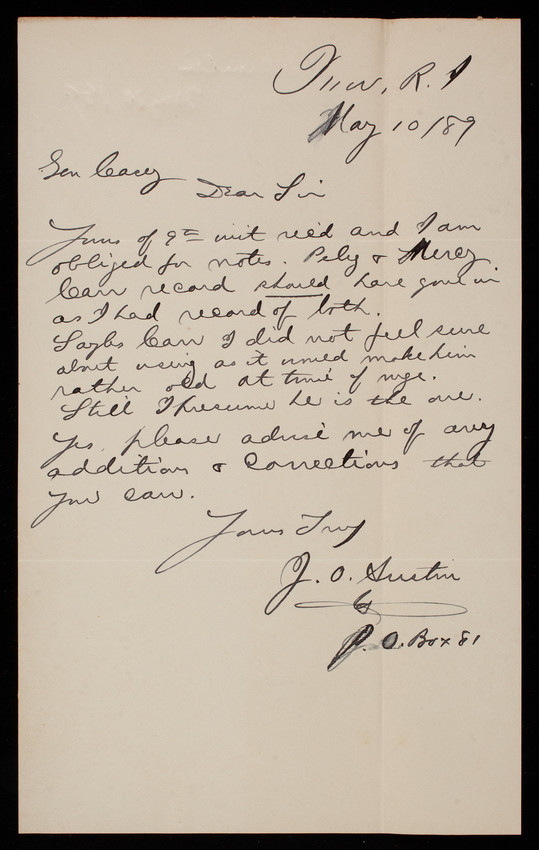 R. I
May 10/89
Gen Casey
Dear Sir
Yours of 9th inst rec'd and I am
obliged for notes. Peleg & Mercy
Carr record should have gone in
as I had record of both.
Carr I did not feel sure
about using as it would make him
rather old at time of mge.
Still I presume he is the one.
Yes, please advise me of any
additions & corrections that
you can.
Yours Truly
J. O. Austin
P. O. Box 81